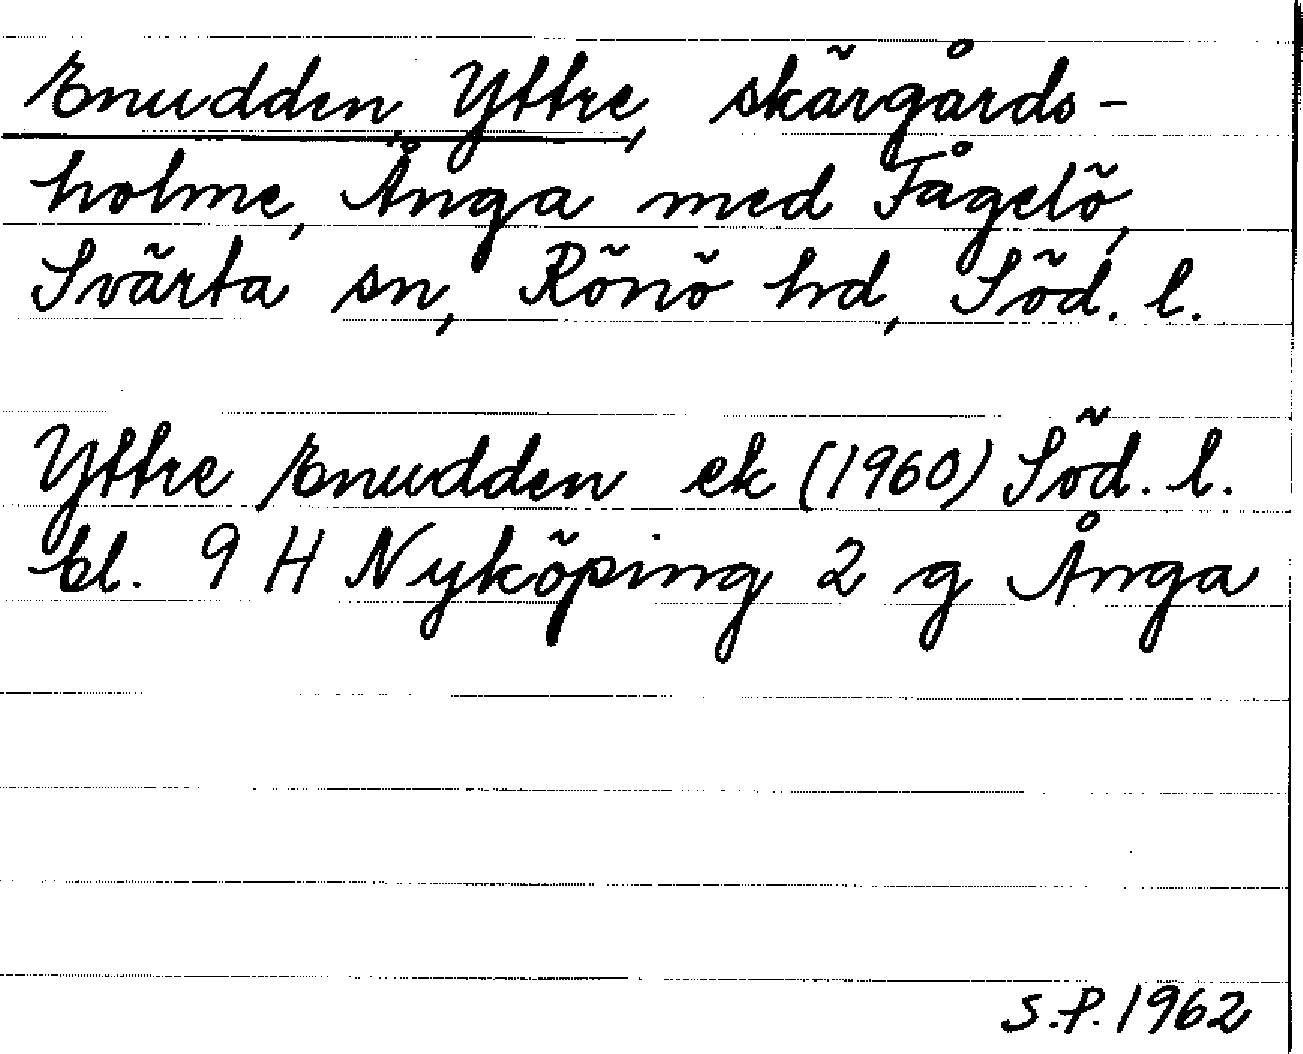 Enudden, Yttre, skärgårds-
holme, Ånga med Fågelö,
Svärta sn, Rönö hd, Söd. l.
Yttre Enudden ek (1960) Söd. l.
bl. 9 H Nyköping 2 g Ånga
S.P. 1962